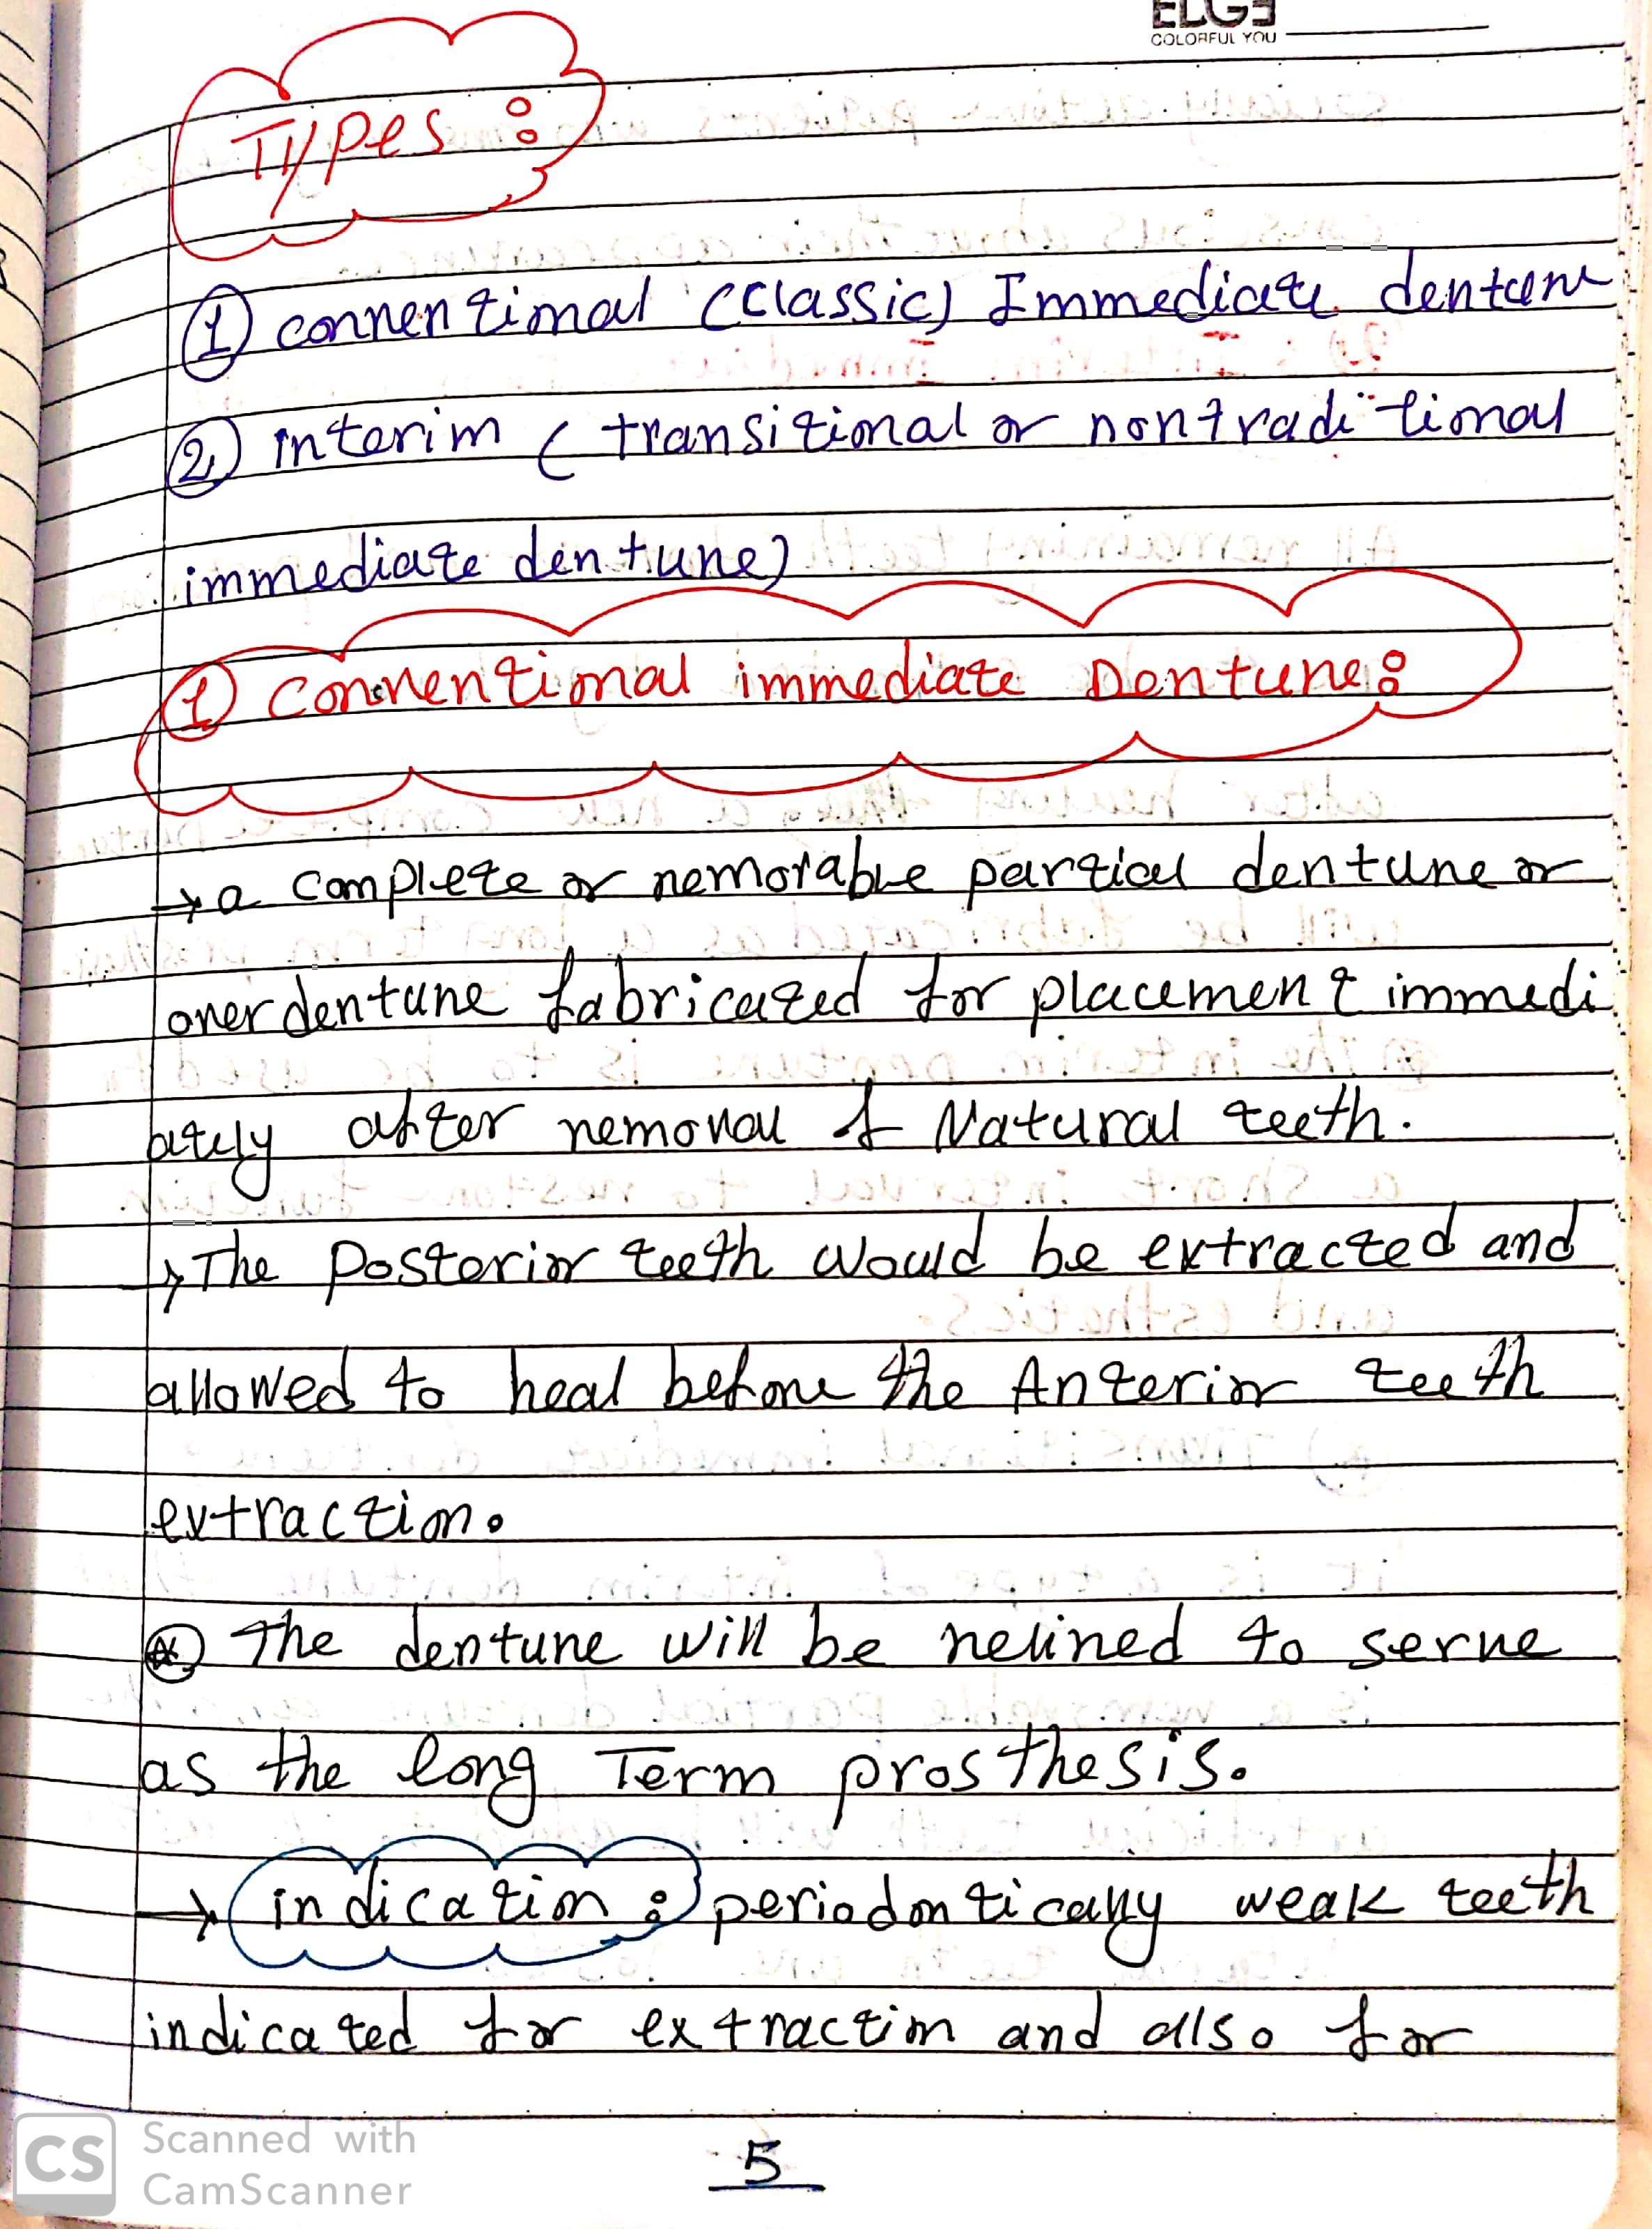 ELGE
COLORFUL YOU
Types :
① conventional (classic) Immediate denture
② interim ( transitional or nontraditional
immediate denture)
① Conventional immediate Denture:
→ a complete or removable partial denture or
overdenture fabricated for placement immedi
ately after removal of Natural teeth.
→ The Posterior teeth would be extracted and
allowed to heal before the Anterior teeth
extraction.
The denture will be relined to serve
as the long Term prosthesis.
→ indication : periodontically weak teeth
indicated for extraction and also for
5
CS Scanned with
CamScanner